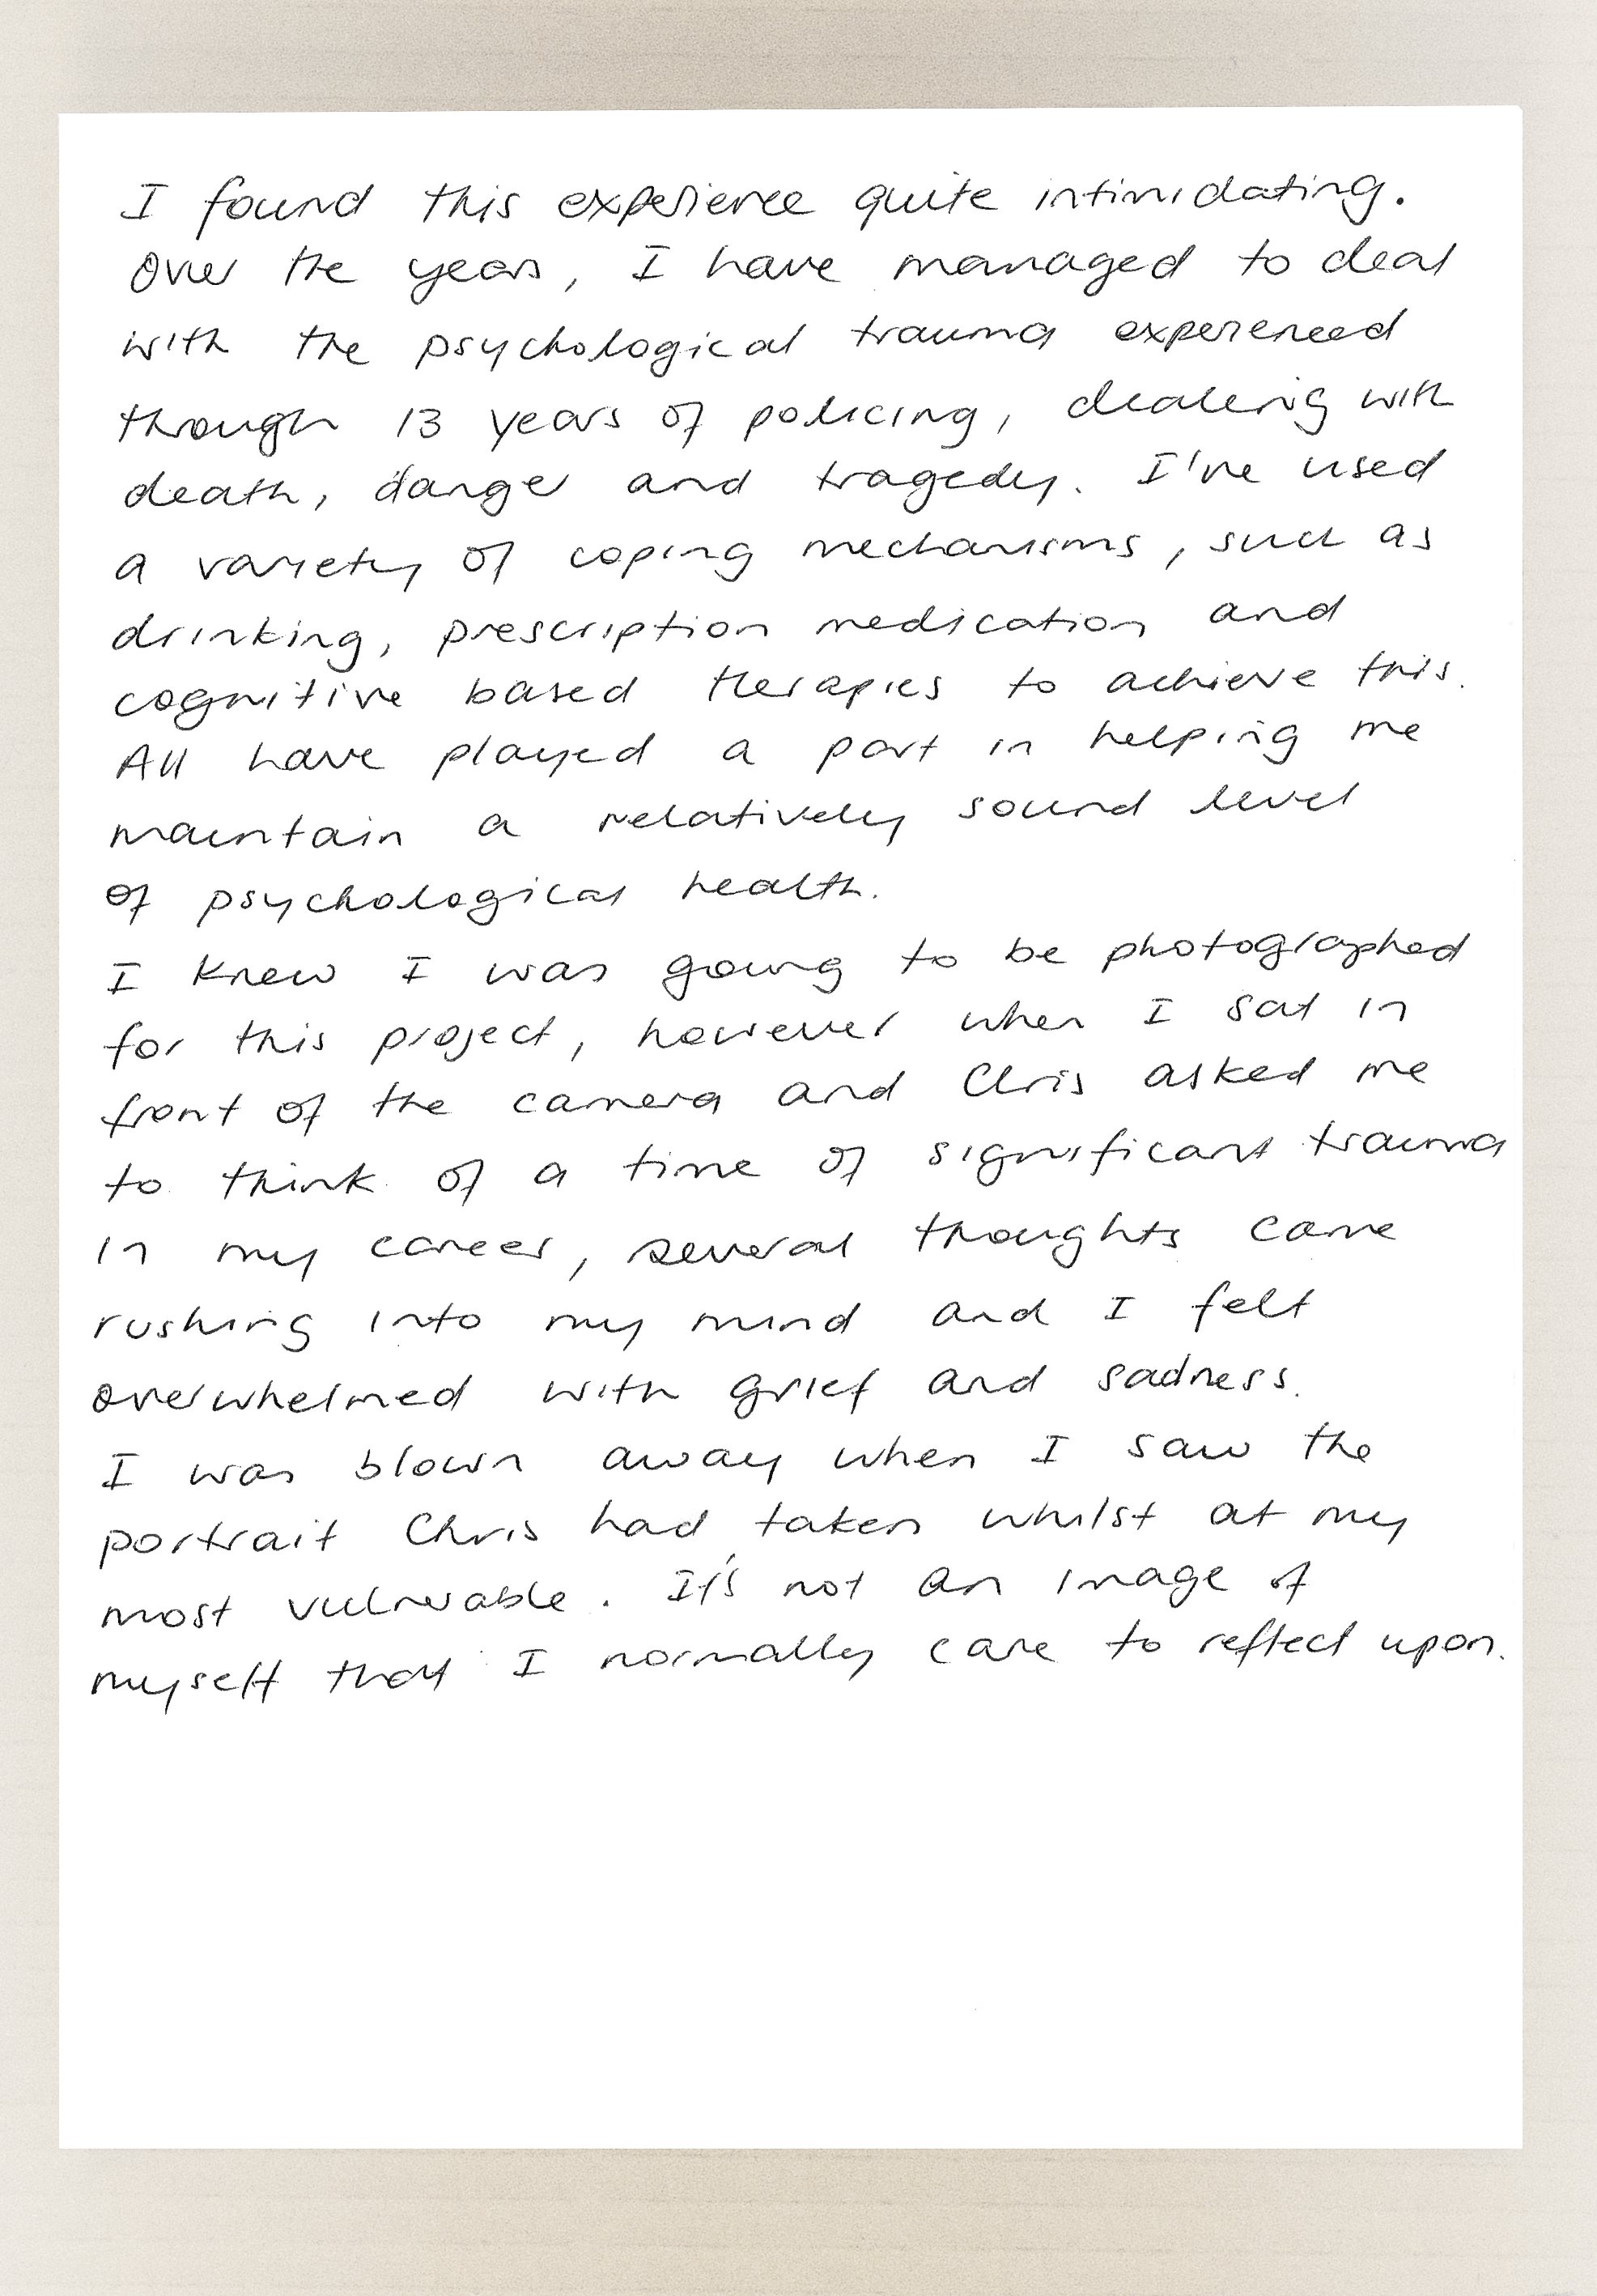 I found this experience quite intimidating.
Over the years, I have managed to deal
with the psychological trauma experienced
through 13 years of policing, dealing with
death, danger and tragedy. I've used
a variety of coping mechanisms, such as
drinking, prescription medication and
cognitive based therapies to achieve this.
All have played a part in helping me
maintain a relatively sound level
of psychological health.
I knew I was going to be photographed
for this project, however when I sat in
front of the camera and Chris asked me
to think of a time of significant trauma
in my career, several thoughts came
rushing into my mind and I felt
overwhelmed with grief and sadness.
I was blown away when I saw the
portrait Chris had taken whilst at my
most vulnerable. It's not an image of
myself that I normally care to reflect upon.